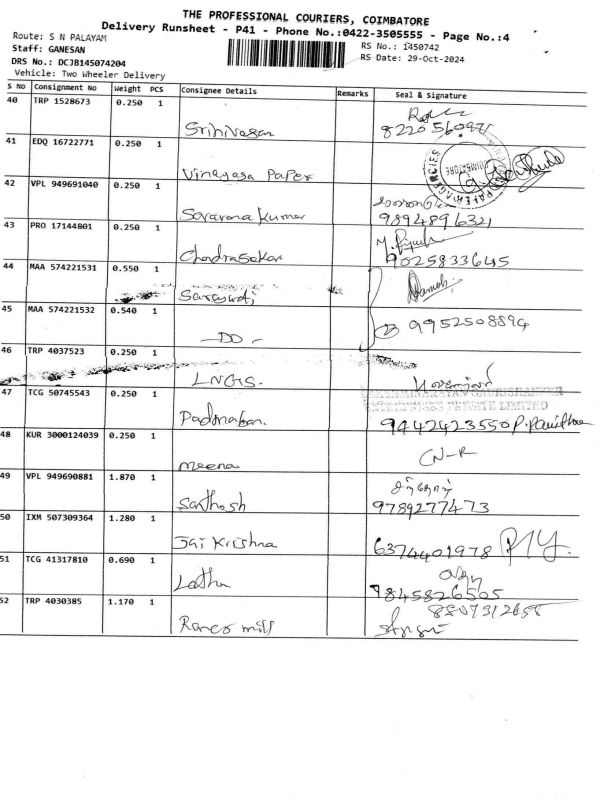 THE PROFESSIONAL COURIERS, COIMBATORE
Delivery Runsheet - P41 - Phone No.:0422-3505555 - Page No.:4
Route: S N PALAYAM
RS No.: 1450742
Staff: GANESAN
RS Date: 29-Oct-2024
DRS No.: DCJB145074204
Vehicle: Two Wheeler Delivery
S No Consignment No Weight PCS Consignee Details Remarks Seal & Signature
40 TRP 1528673 0.250 1
Srinivasan
41 EDQ 16722771 0.250 1
Vinayaga Paper
PAPER AGENCIES COIMBATORE
42 VPL 949691040 0.250 1
Saravana Kumar 9894896321
43 PRO 17144801 0.250 1
Chandrasekar 9025833645
44 MAA 574221531 0.550 1
45 MAA 574221532 0.540 1
-DO- 9952508894
46 TRP 4037523 0.250 1
LNGS.
PRIVATE LIMITED
47 TCG 50745543 0.250 1
9442423550
48 KUR 3000124039 0.250 1
Meena
49 VPL 949690881 1.870 1
Santhosh 9789277473
50 IXM 507309364 1.280 1
Jai Krishna 6374401978
51 TCG 41317810 0.690 1
Latha 9845826505
52 TRP 4030385 1.170 1
mill